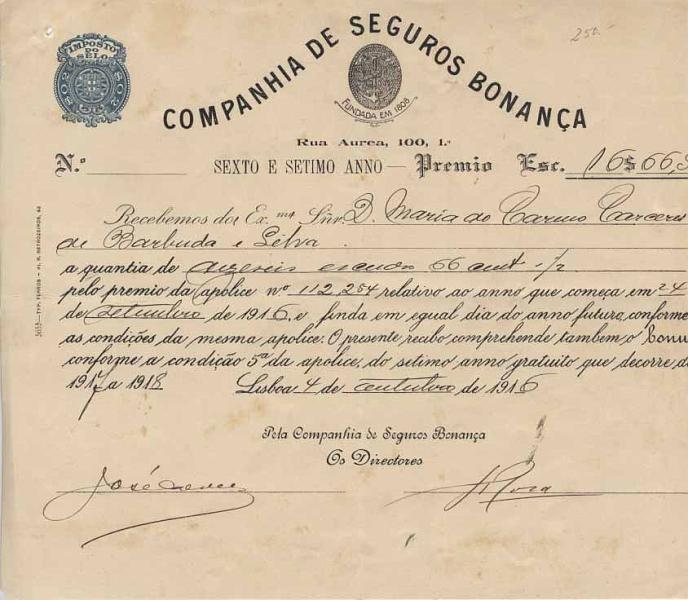 250
IMPOSTO DO SELLO
COMPANHIA DE SEGUROS BONANÇA
FUNDADA EM 1808
Rua Aurea, 100, 1.º
N.º
SEXTO E SETIMO ANNO — Premio Esc. 16$66,5
Recebemos do Ex.mo Snr. D. Maria do Carmo
de Barbuda e Silva
a quantia de dezeseis escudos 66 cent 1/2
pelo premio da apolice n.º 112,254 relativo ao anno que começa em 24
de Setembro de 1916, e finda em egual dia do anno futuro, conforme
as condições da mesma apolice. O presente recibo comprehende tambem o Bonu
conforme a condição 5ª da apolice, do setimo anno gratuito que decorre d
1917 a 1918 Lisboa 4 de outubro de 1916
Pela Companhia de Seguros Bonança
Os Directores
José